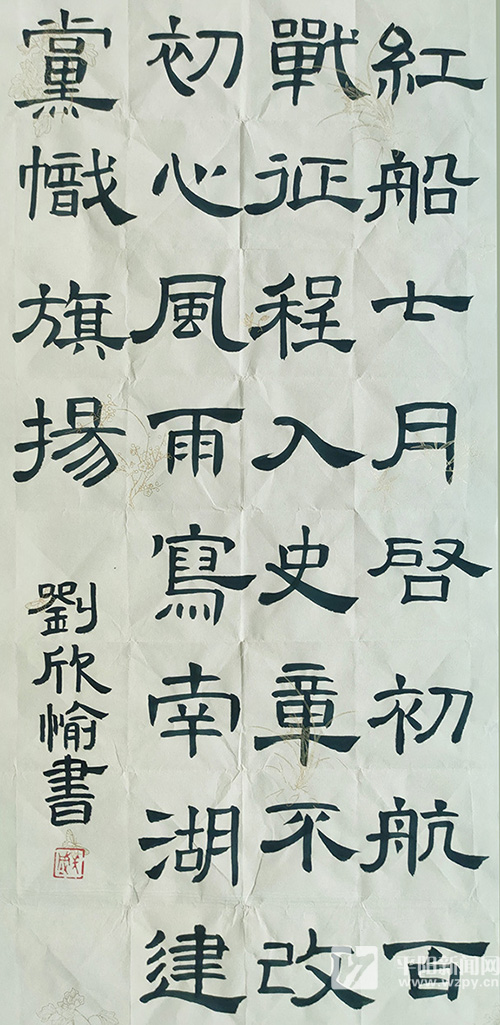 紅船七月启初航百
戰征程入史章不改
初心風雨寫南湖建
黨幟旗揚
劉欣愉書
平阳新闻网
www.wzpy.cn